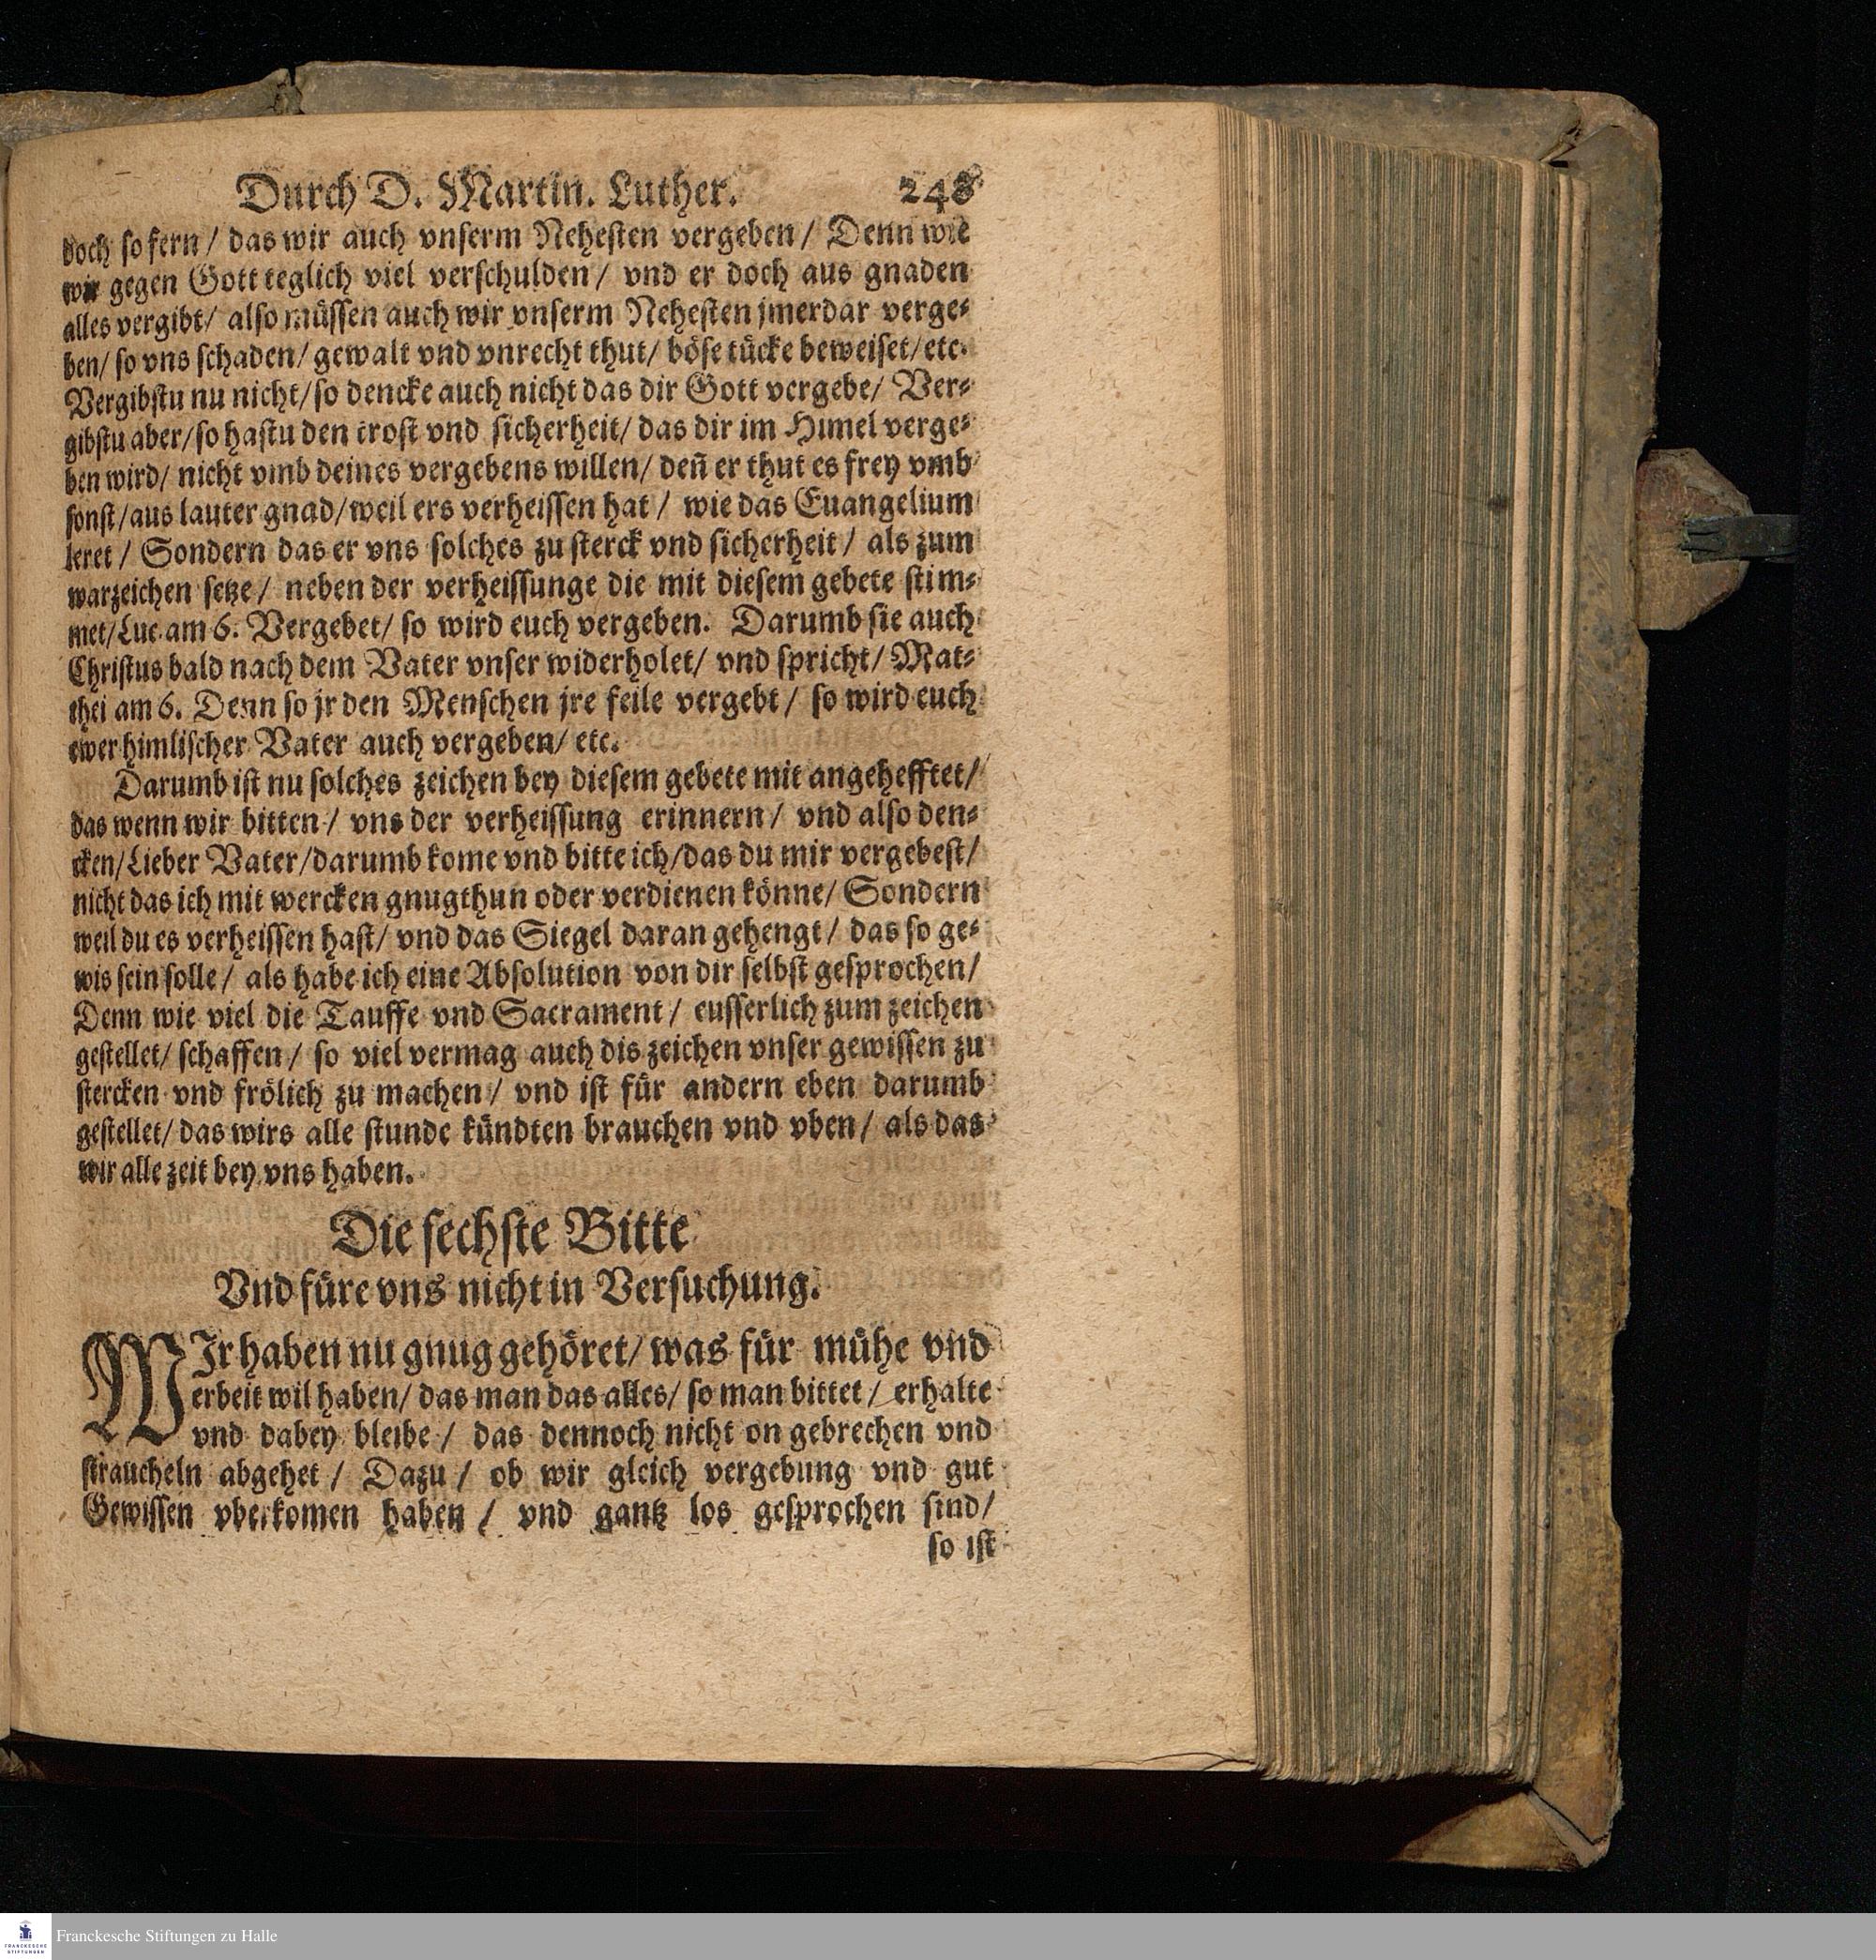 Durch D. Martin. Luther. 248
doch so fern / das wir auch vnserm Nehesten vergeben / Denn wie
wir gegen Gott teglich viel verschulden / vnd er doch aus gnaden
alles vergibt / also müssen auch wir vnserm Nehesten jmerdar verge⸗
ben / so vns schaden / gewalt vnd vnrecht thut / böse tücke beweiset / etc.
Vergibstu nu nicht / so dencke auch nicht das dir Gott vergebe / Ver⸗
gibstu aber / so hastu den trost vnd sicherheit / das dir im Himel verge⸗
ben wird / nicht vmb deines vergebens willen / deñ er thut es frey vmb
sonst / aus lauter gnad / weil ers verheissen hat / wie das Euangelium
leret / Sondern das er vns solches zu sterck vnd sicherheit / als zum
warzeichen setze / neben der verheissunge die mit diesem gebete stim⸗
met / Luc. am 6. Vergebet / so wird euch vergeben. Darumb sie auch
Christus bald nach dem Vater vnser widerholet / vnd spricht / Mat⸗
thei am 6. Denn so jr den Menschen jre feile vergebt / so wird euch
ewer himlischer Vater auch vergeben / etc.
Darumb ist nu solches zeichen bey diesem gebete mit angehefftet /
das wenn wir bitten / vns der verheissung erinnern / vnd also den⸗
cken / Lieber Vater / darumb kome vnd bitte ich / das du mir vergebest /
nicht das ich mit wercken gnugthun oder verdienen könne / Sondern
weil du es verheissen hast / vnd das Siegel daran gehengt / das so ge⸗
wis sein solle / als habe ich eine Absolution von dir selbst gesprochen /
Denn wie viel die Tauffe vnd Sacrament / eusserlich zum zeichen
gestellet / schaffen / so viel vermag auch dis zeichen vnser gewissen zu
stercken vnd frölich zu machen / vnd ist für andern eben darumb
gestellet / das wirs alle stunde kündten brauchen vnd vben / als das
wir alle zeit bey vns haben.
Die sechste Bitte
Vnd füre vns nicht in Versuchung.
WIr haben nu gnug gehöret / was für mühe vnd
erbeit wil haben / das man das alles / so man bittet / erhalte
vnd dabey bleibe / das dennoch nicht on gebrechen vnd
straucheln abgehet / Dazu / ob wir gleich vergebung vnd gut
Gewissen vberkomen haben / vnd gantz los gesprochen sind /
so ist
Franckesche Stiftungen zu Halle
FRANCKESCHE
STIFTUNGEN